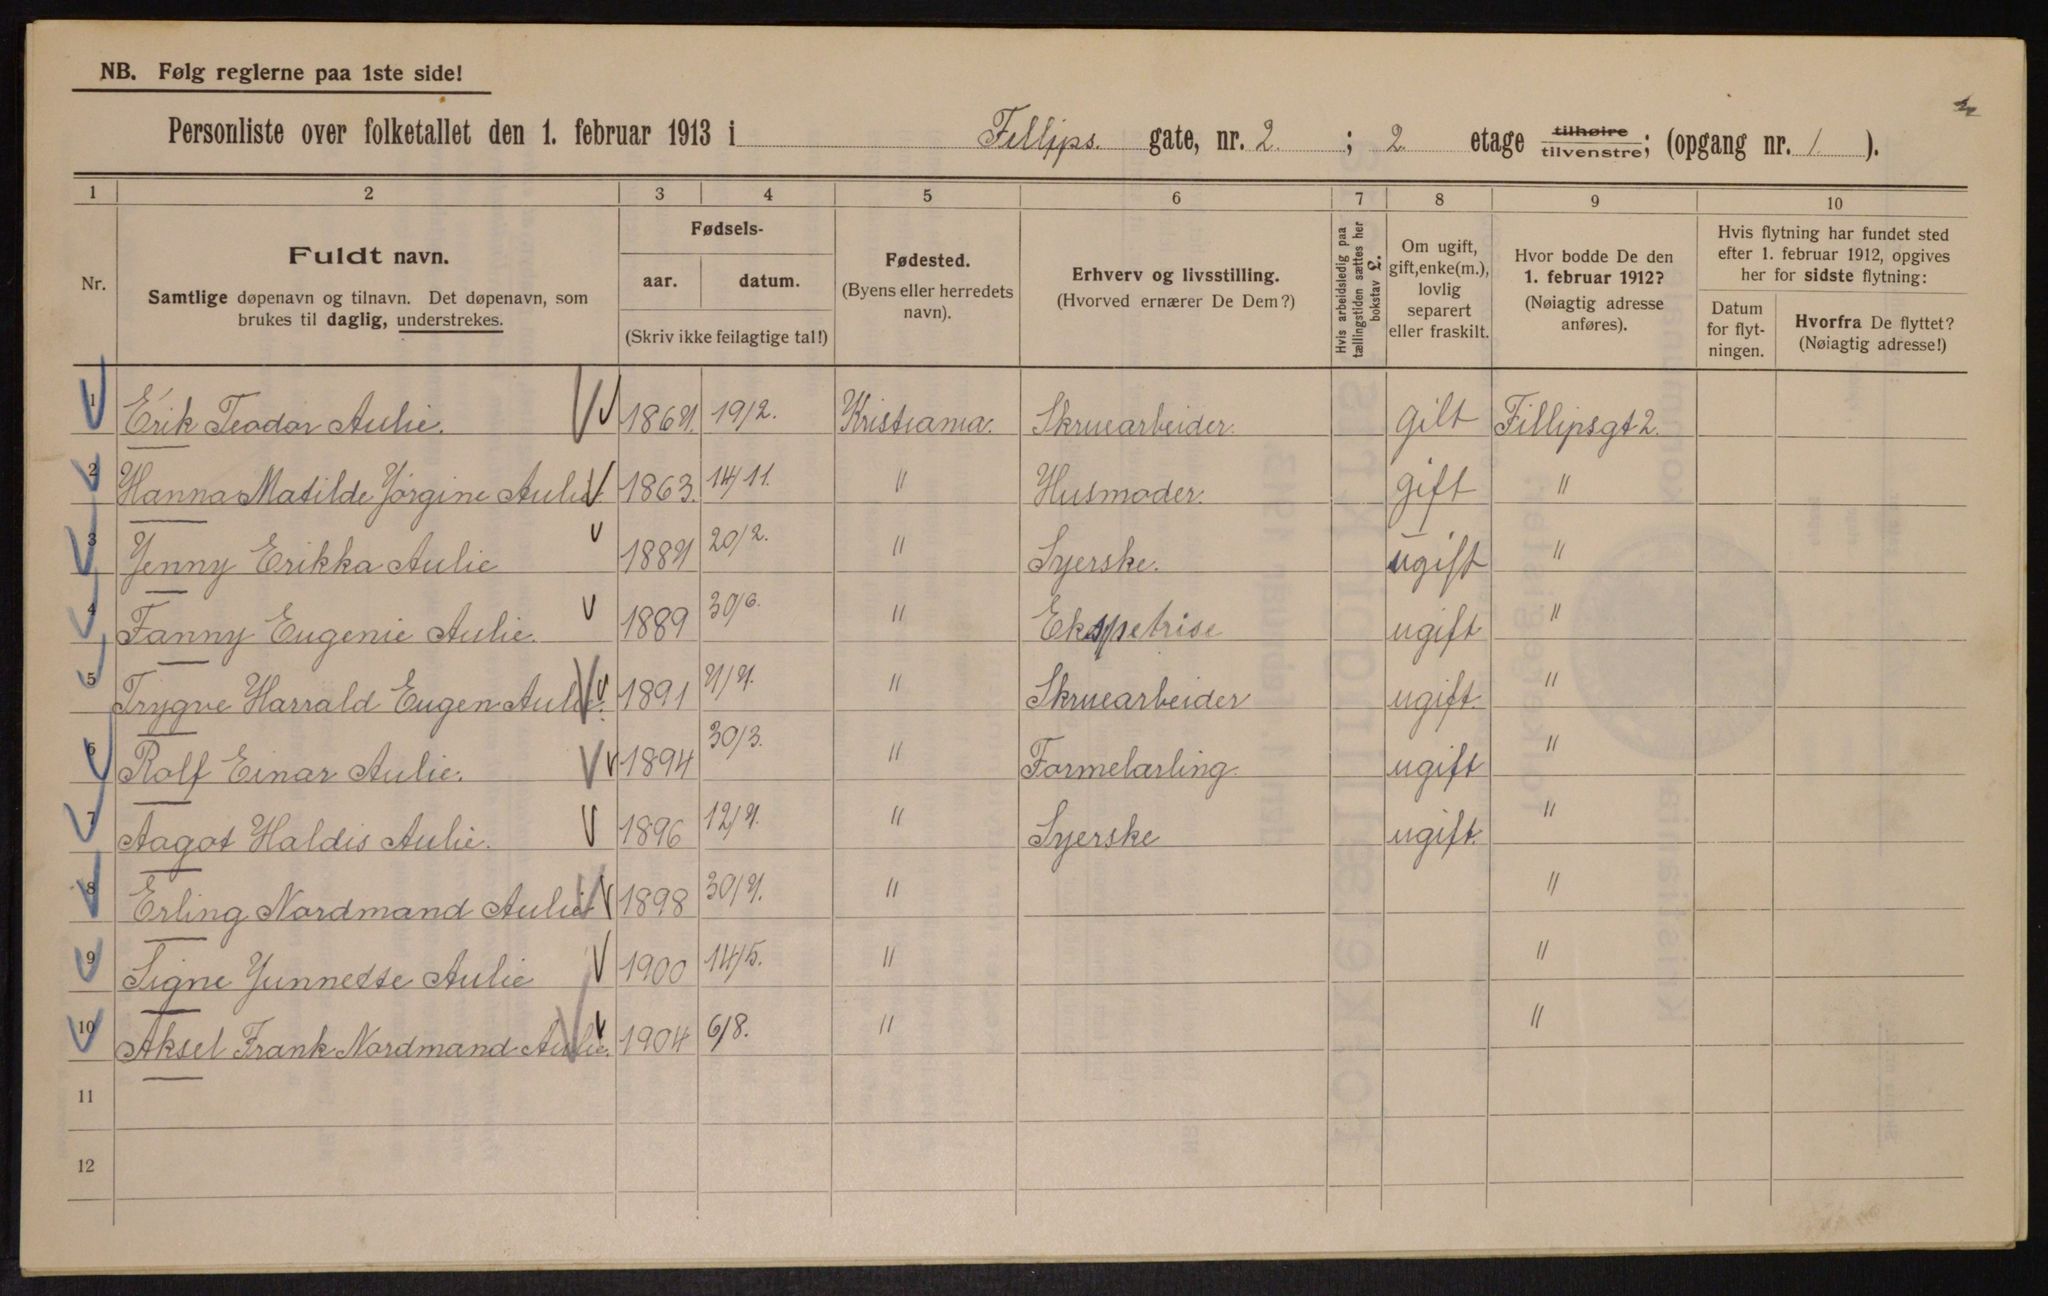 NB. Følg reglerne paa 1ste side!
Personliste over folketallet den 1. februar 1913 i Fillips. gate, nr. 2 ; 2 etage tilhøire / tilvenstre; (opgang nr. 1 ).
1 2 3 4 5 6 7 8 9 10
Nr.
Fuldt navn.
Samtlige døpenavn og tilnavn. Det døpenavn, som
brukes til daglig, understrekes.
Fødsels-
aar. datum.
(Skriv ikke feilagtige tal!)
Fødested.
(Byens eller herredets
navn).
Erhverv og livsstilling.
(Hvorved ernærer De Dem?)
Hvis arbeidsledig paa
tællingstiden sættes her
bokstav L.
Om ugift,
gift, enke(m.),
lovlig
separert
eller fraskilt.
Hvor bodde De den
1. februar 1912?
(Nøiagtig adresse
anføres).
Hvis flytning har fundet sted
efter 1. februar 1912, opgives
her for sidste flytning:
Datum
for flyt-
ningen.
Hvorfra De flyttet?
(Nøiagtig adresse!)
1 Erik Teodor Aulie. 19/2. Kristiania. Skruearbeider. gilt Fillipsgt 2.
2 Hanna Matilde Jørgine Aulie. 1863. 14/11. " Husmoder. gift "
3 Jenny Erikka Aulie 20/2. " Syerske. ugift "
4 Fanny Eugenie Aulie. 1889 30/6. " Ekspetrise ugift "
5 Trygve Harrald Eugen Aulie. 1891 " Skruearbeider ugift. "
6 Rolf Einar Aulie. 1894 30/3. " Formelærling. ugift "
7 Aagot Haldis Aulie. 1896 " Syerske ugift. "
8 Erling Nordmand Aulie 1898 " "
9 Signe Junnette Aulie 1900 14/5. " "
10 Aksel Frank Nordmand Aulie. 1904 6/8. " "
11
12